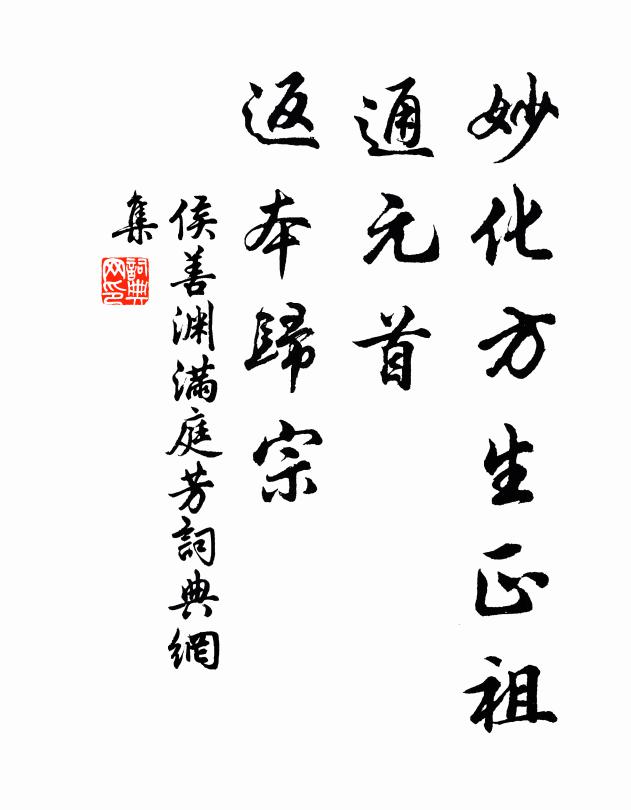 妙化方生正祖
通元首
返本歸宗
侯善渊滿庭芳詞典網
集
詞典
网印